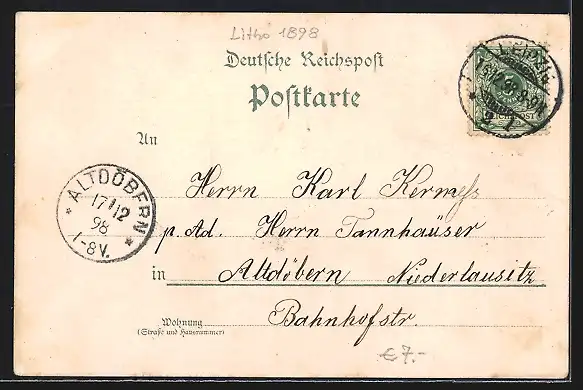 Litho 1898
Deutsche Reichspost
Postkarte
An
Herrn Karl Kermess
p. Ad. Herrn Tannhäuser
in Altdöbern Niederlausitz
Bahnhofstr.
Wohnung
(Straße und Hausnummer)
ALTDÖBERN
17/12
98
7-8V.
LEIPZIG
5
1
€7.-